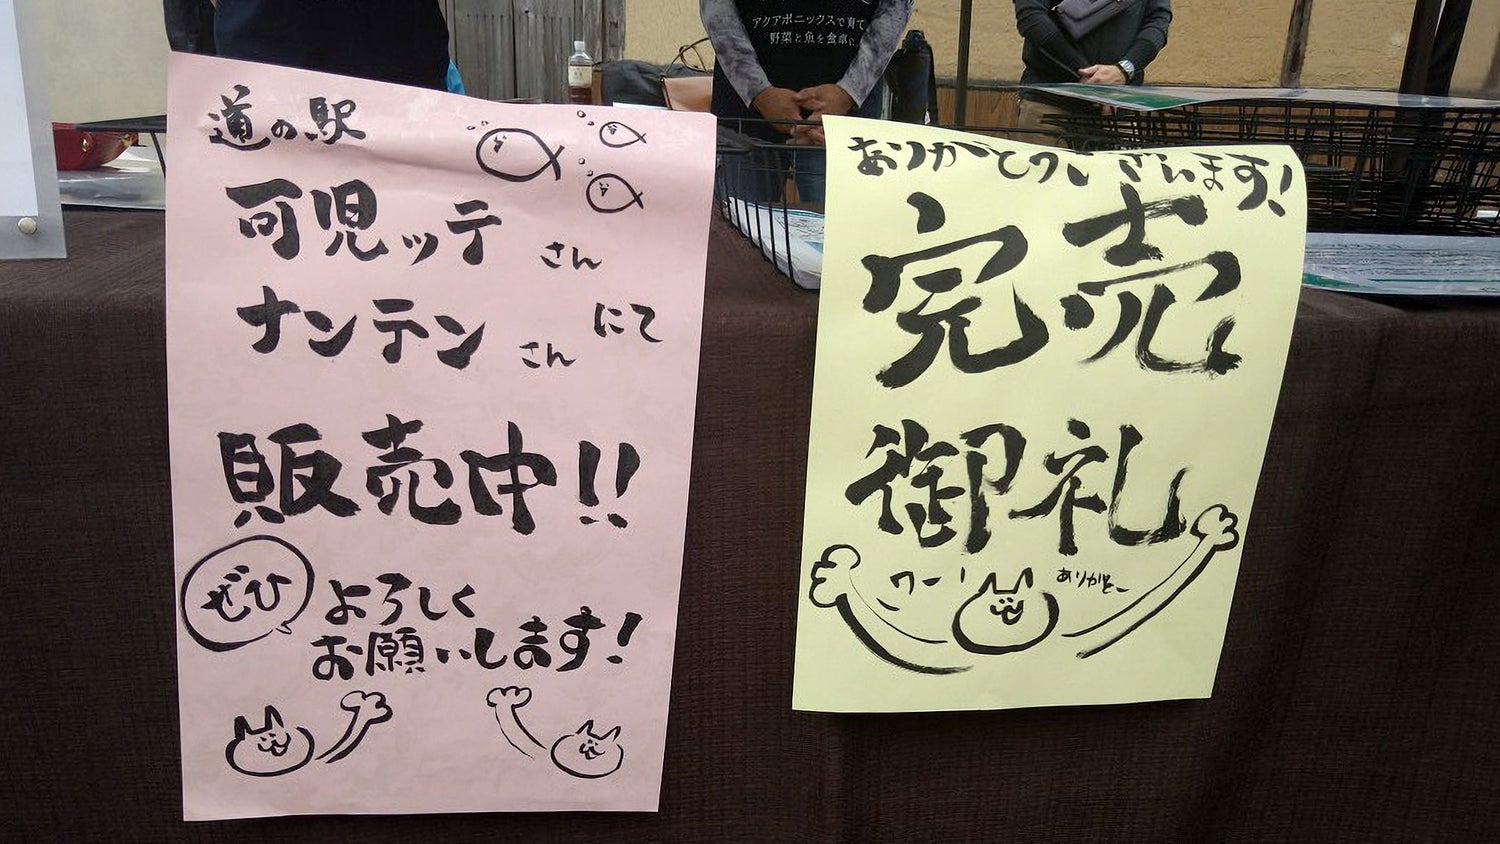 アクアポニックスで育て
野菜と魚を食卓に
道の駅
可児ッテ さん
ナンテン さん にて
販売中!!
ぜひ
よろしく
お願いします!
ありがとうございます!
完売
御礼
ワーイ
ありがとー